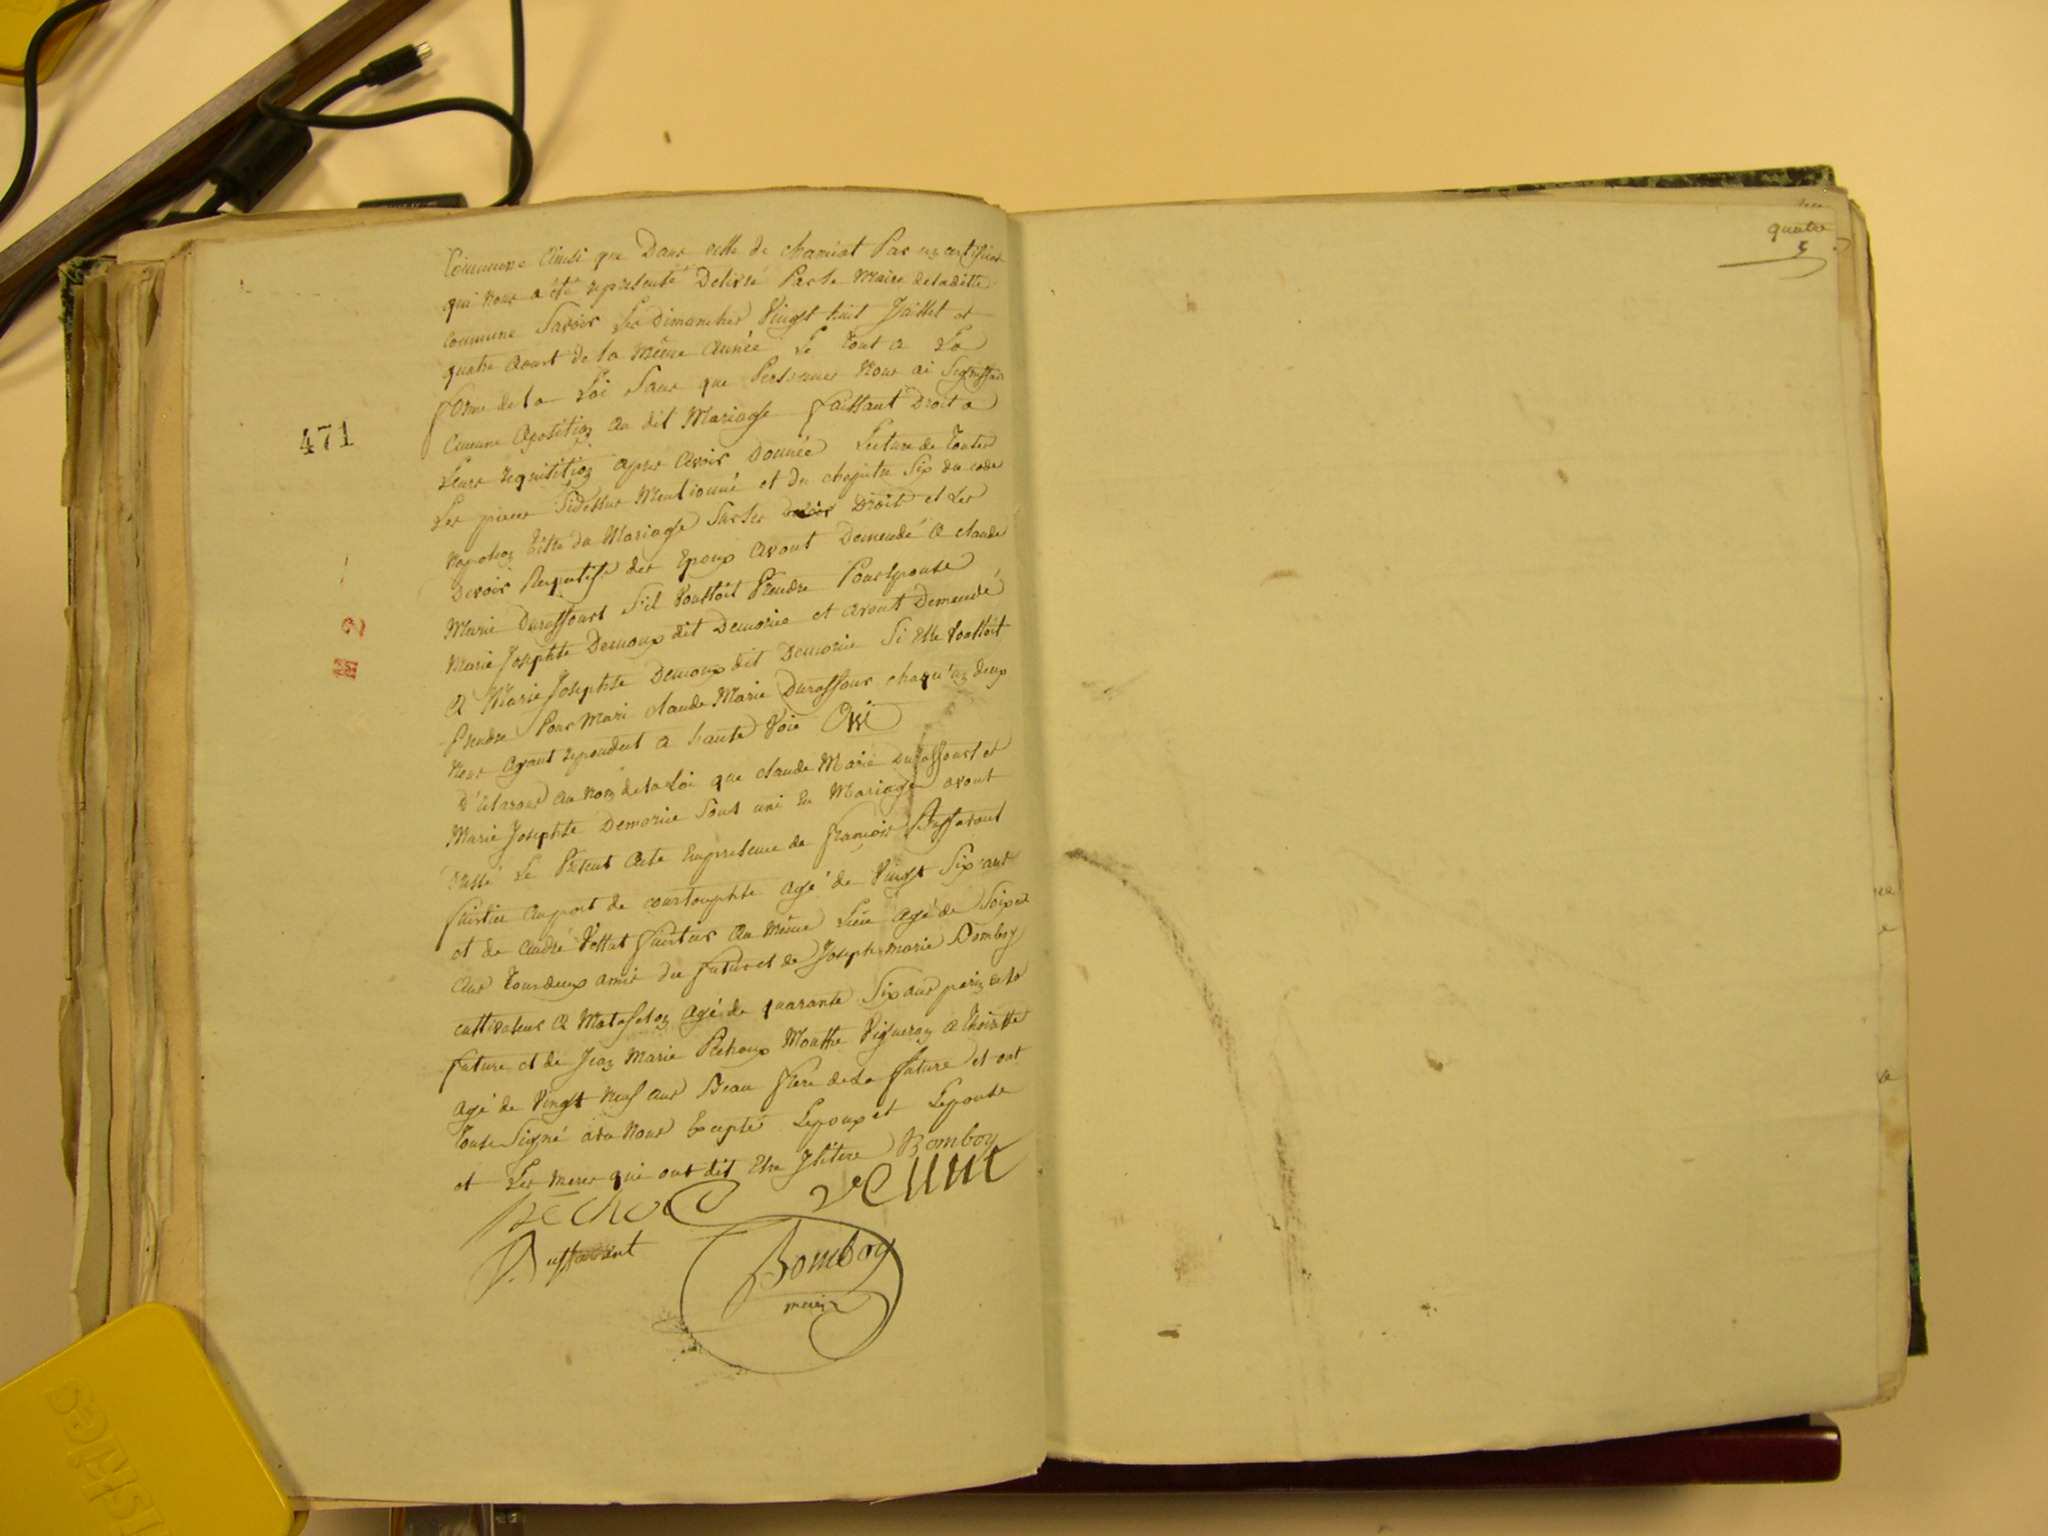 Commune Ainsi que Dans celle de chamiat Par un certificat
qui nous a été representé Delivré Par le Maire de ladite
commune Savoir Les dimanches Vingt huit Juillet et
quatre Aoust de la Même année Le Tout a La
forme de la Loi Sans que Personnes Nous ai Signiffié
Aucune Oposition au dit Mariage faissant Droit a
Leurs requisition apres Avoir Donnée Lecture de Toutes
Les pieces Sidessus Mentionné et du chapitre Six du code
Napoleon titre du Mariage Sur les Droits et Les
Devoir Respectifs des Epoux avont Demendé a claude
Marie Duraffourt S'il Voulloit Prendre Pour Epouse
Marie Josephte Demoux dit Demorie et avont Demendé
A Marie Josephte Demoux dit Demorie Si Elle Voulloit
Prendre Pour Mari claude Marie Duraffour chaqu'un deux
Nous Ayant repondut a haute Voie Oui
D'éclarons au Nom de la Loi que claude Marie Duraffourt et
Marie Josephte Demorie Sont uni En Mariage avont
Dressé Le Présent Acte En presence de françois Buffavant
au port de courtouphle agé de Vingt Six ans
et de André Vollat au Même Lieu agé de Soixante
Ans Tous deux amis du futur et de Joseph marie Bomboy
cultivateur a Matafelon agé de quarante Six ans parin de la
future et de Jean Marie Rechoux Vigneron a Thoirette
agé de Vingt Neuf ans Beau frere de la future et ont
Tous Signé avec Nous Excepté Lepoux et Lepouse
et Les meres qui ont dit Etre Iliteré Bomboy
Buffavant
Bomboy
maire
471
quatre